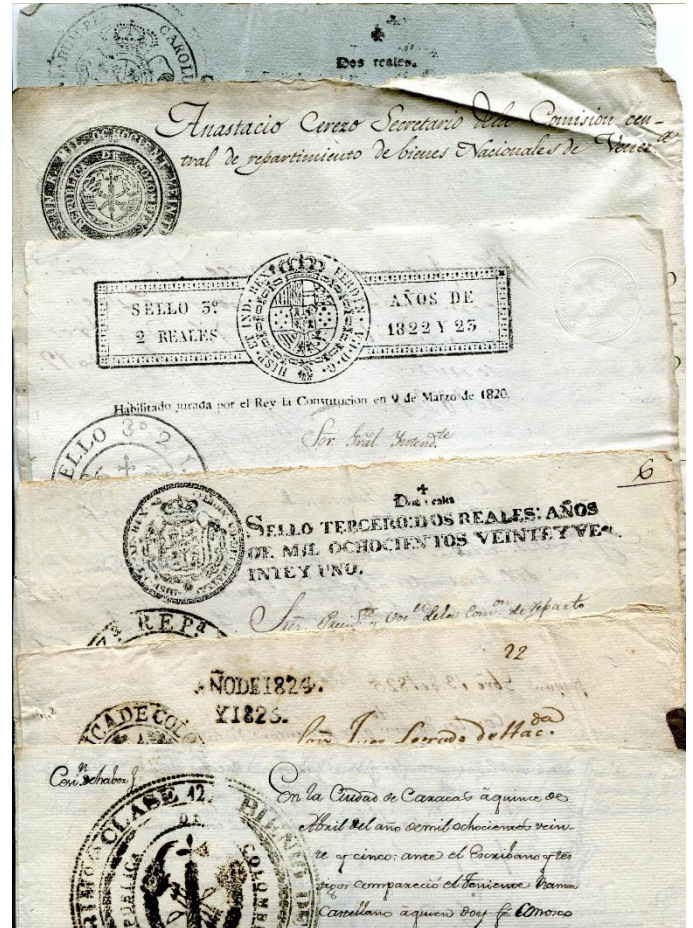 CAROL
Dos reales.
Anastacio Cerezo Secretario dela Comision cen-
tral de repartimiento de bienes Nacionales de
REPUBLICA DE COLOMBIA
SELLO 3º
2 REALES
HISP. ET IND. REX FERDIN. VII. D. G.
AÑOS DE
1822 Y 23
Habilitado jurada por el Rey la Constitucion en 9 de Marzo de 1820.
Sor. Gral Yntendte
SELLO 3º 2
6
Dos reales
SELLO TERCERO: DOS REALES: AÑOS
DE MIL OCHOCIENTOS VEINTE Y VE-
INTE Y UNO.
Sor. Presidte y Voc dela Comon de reparto
REPª
22
AÑO DE 1824.
Y 1825.
CA DE COLO
Sor Juez Letrado de Hacda
CLASE 12.
BIENIO DE
REPÚBLICA DE COLOMBI
En la Ciudad de Caracas á quince de
Abril del año de mil ochocientos vein-
te y cinco: ante el Escribano y tes
tigos compareció el Teniente Ramon
Castellano á quien doy fe Conosco